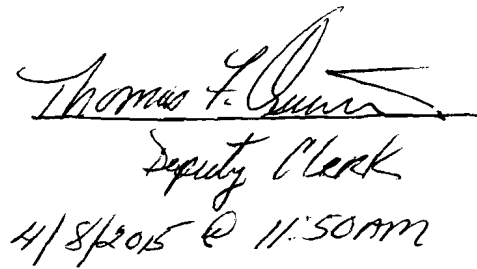 Thomas F.
Deputy Clerk
4/8/2015 @ 11:50AM